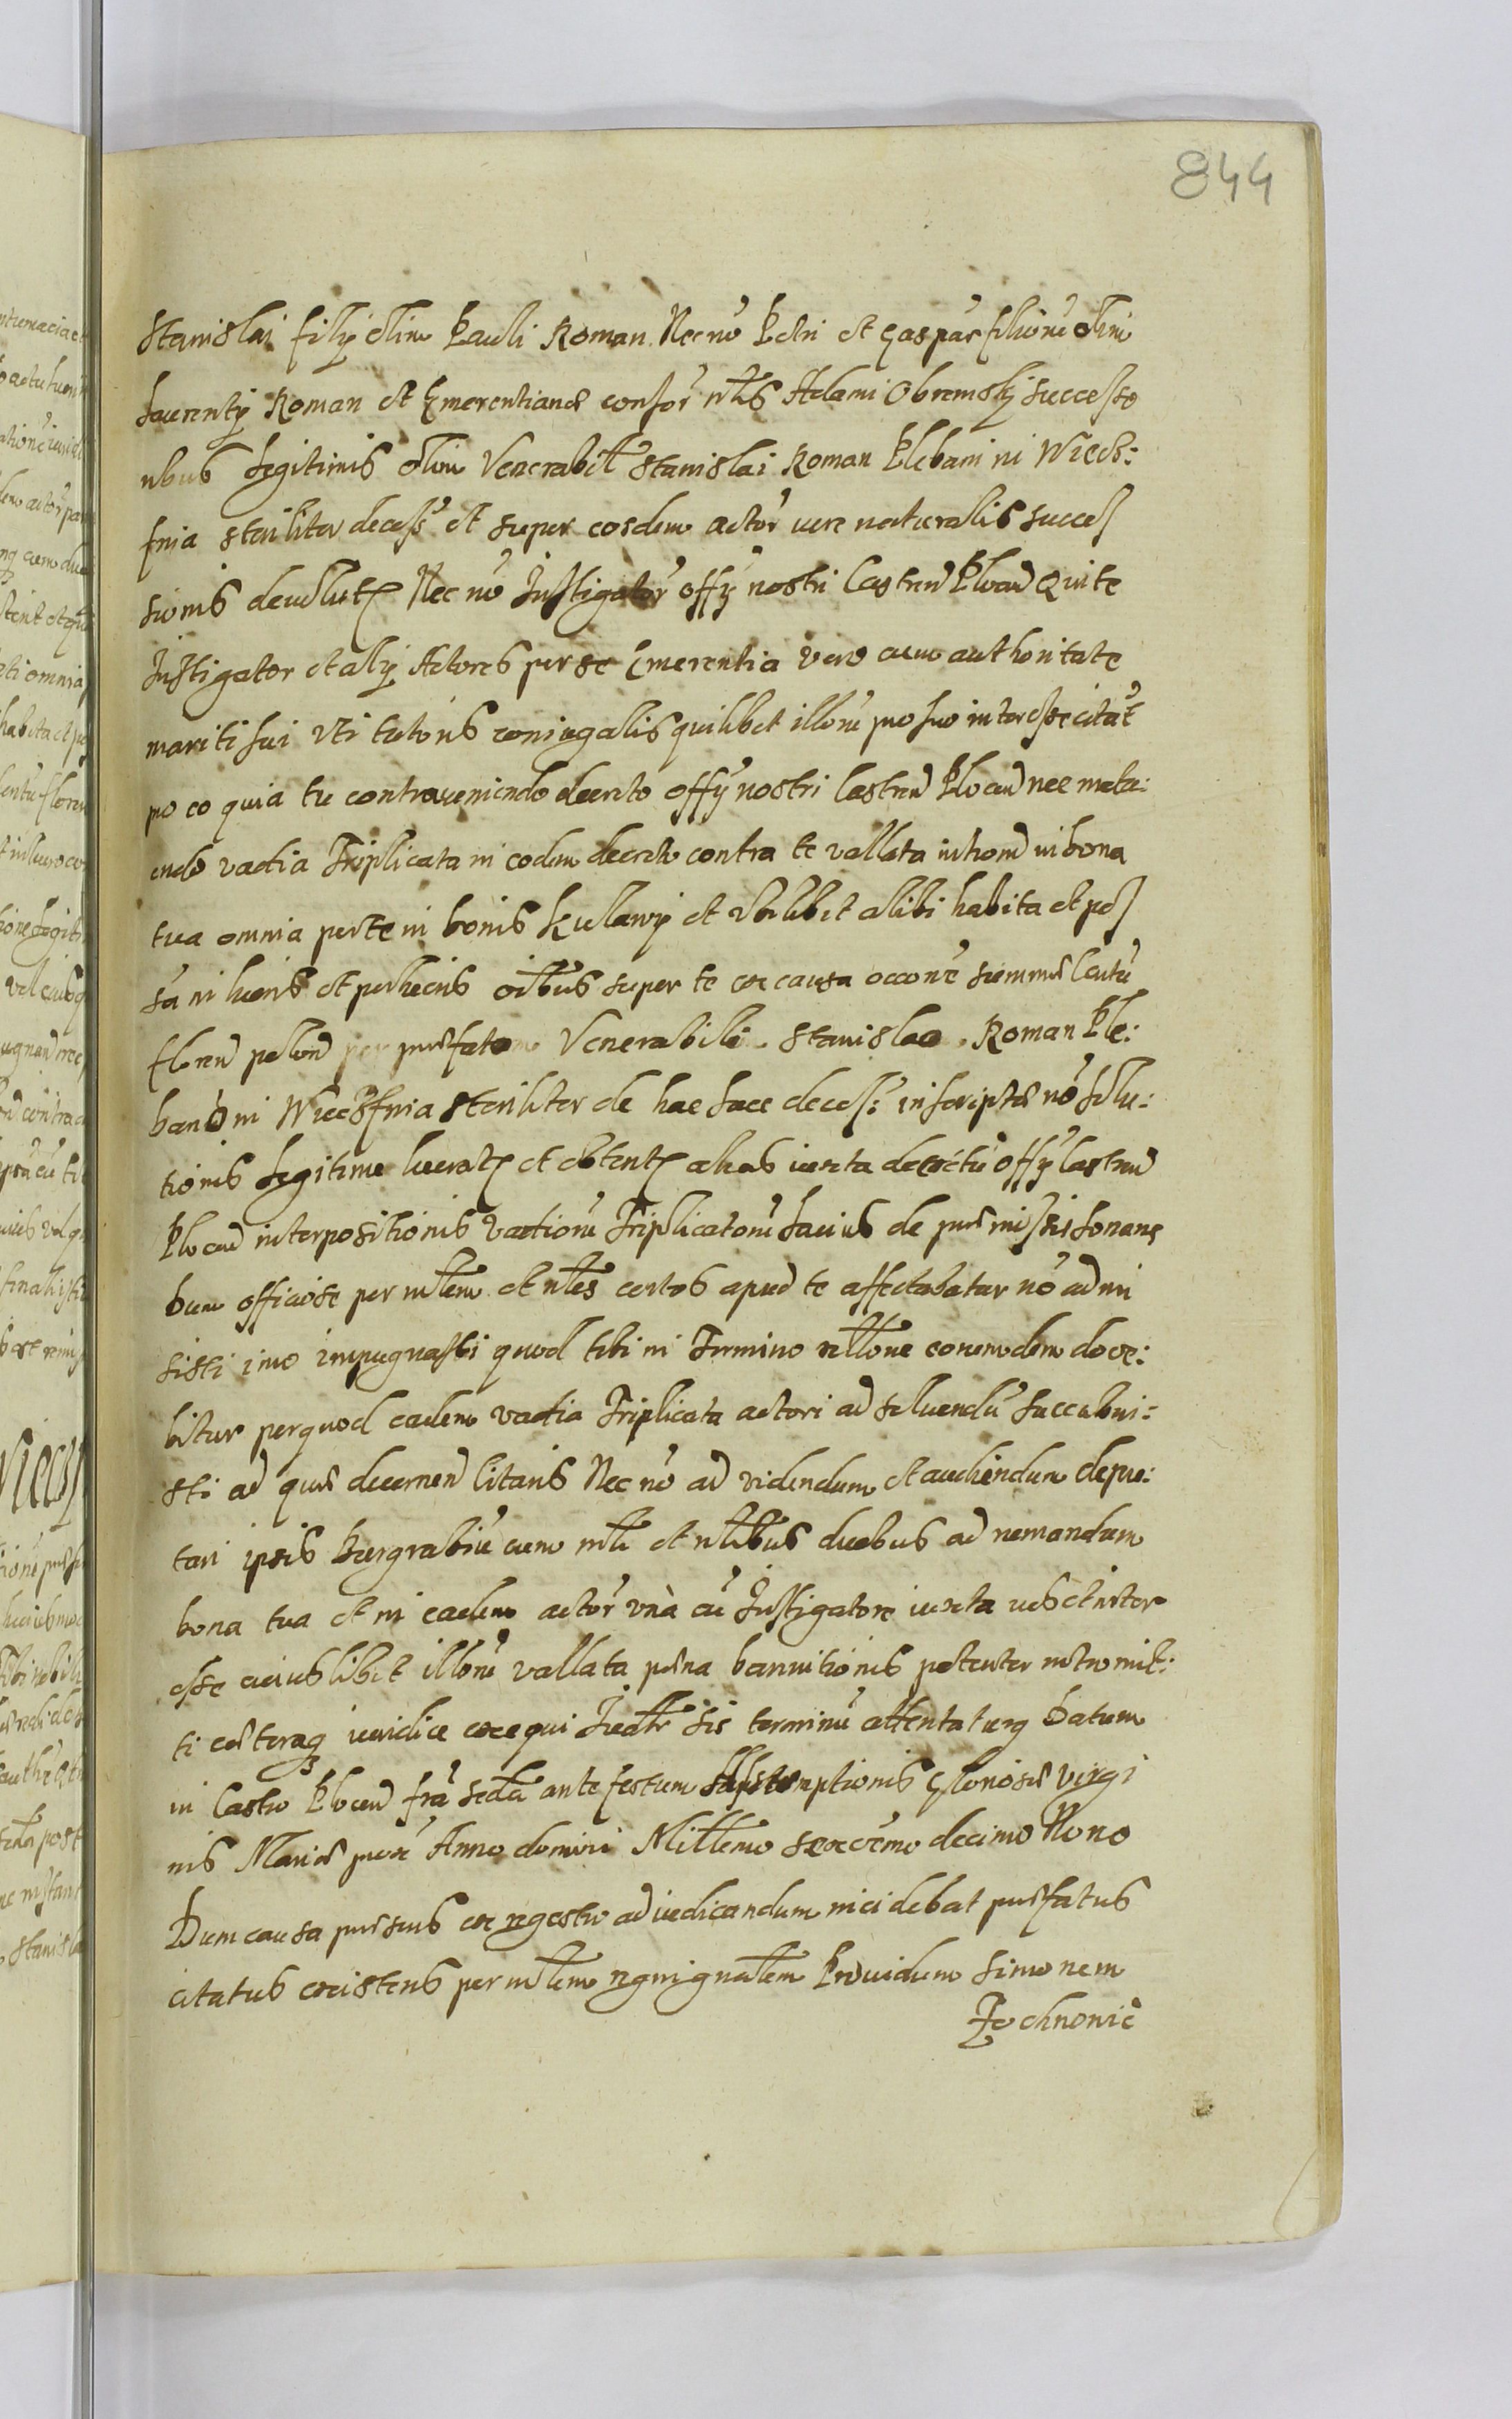 844
Stanislai filÿ olim Pauli Roman Nec nō Petri et Gaspar filiorū olim
Laurentÿ Roman et Emerentianæ consor nłis Adami Obremskÿ successo
ribus legitimis olim Venerabił Stanislai Roman Plebani in Wiecz:
fnia steriliter decess et super eosdem actor iure naturalis succes
sionis devolut Nec nō Instigator offÿ nostri Castren Plocen Qui te
Instigator et alÿ Actores per se Emerentia vero cum authoritate
mariti sui vti tutoris coniugalis quilibet illorū pro suo interesse citat
pro eo quia tu contraveniendo decreto offÿ nostri Castren Plocen nec metu:
endo vadia Triplicata in eodem decreto contra te vallata introm in bona
tua omnia per te in bonis Kulawÿ et vbilibet alibi habita et pos
sa in lucris et perlucris oībus super te ex causa occone summæ Centū
floren polon per præfatum Venerabile Stanislao Roman Ple:
bano in Wieczfnia steriliter de hac luce decess: inscriptæ nō solu:
tionis legitime lucrat et obtent alias iuxta decretū offÿ Castren
Plocen interpositionis vadiorū Triplicatorū latius de præmissis sonans
dum officiose per młem et nłes certos apud te affectabatur nō admi
sisti imo impugnasti quod tibi in Termino rłłone eorundem doce:
bitur per quod eadem vadia Triplicata actori ad soluendū succubui:
sti ad quæ decernen Citaris Nec nō ad videndum et audiendum depu:
tari ipsis Burgrabiū cum młi et nłibus duobus ad remandum
bona tua et in eadem actor vnà cū Instigatore iuxta ius et inter
esse cuiuslibet illorū vallata pœna bannitionis potenter intromit:
ti cæteraq iuridice exequi Iudtr sis terminū attentaturq Datum
in Castro Plocen fria secda ante festum Assumptionis Gloriosæ virgi
nis Mariæ prox Anno domini Millemo sexcēmo decimo Nono
Dum causa præsens ex regestro ad iudicandum incidebat præfatus
citatus existens per młem regni gnałem Providum Simonem
Jechnovic